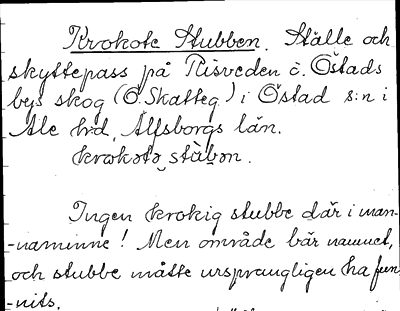 Krokote Stubben. Ställe och
skyttepass på Risveden o. Östads
bys skog (Ö. Skatteg.) i Östad s:n i
Ale hrd, Älfsborgs län.
krokotə stùbən.
Ingen krokig stubbe där i man-
-naminne! Men område bär namnet,
och stubbe måtte ursprungligen ha fun
-nits.